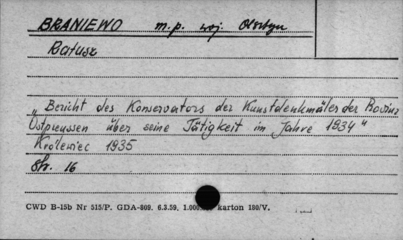 BRANIEWO m.p. woj. Olsztyn
Ratusz
„Bericht des Konservators der Kunstdenkmäler der Provinz
Ostpreussen über seine Tätigkeit im Jahre 1934"
Królewiec 1935
Str. 16
CWD B-15b Nr 515/P. GDA-809. 6.3.59. 1.000 karton 180/V.